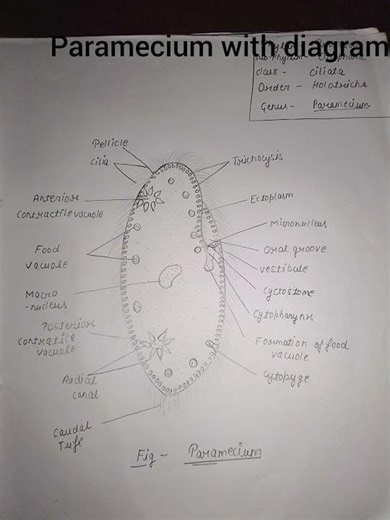 Paramecium with diagram
class - ciliata
Order - Holotricha
Genus - Paramecium
Pellicle
cilia
Trichocysis
Anterior
contractile vacuole
Ectoplasm
Mironucleus
Food
vacuole
Oral groove
vestibule
Cyctostome
Macro
-nucleus
Cytopharynx
Posterior
contratile
vacuole
Formation of food
vacuole
Radial
canal
Cytopyge
Caudal
Tuft
Fig - Paramecium